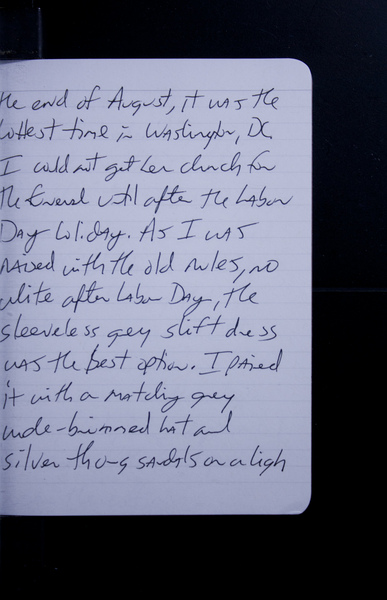 the end of August, it was the
hottest time in Washington, DC
I could not get her church for
the funeral until after the Labor
Day holiday. As I was
raised with the old rules, no
white after Labor Day, the
sleeveless grey shift dress
was the best option. I paired
it with a matching grey
wide-brimmed hat and
silver thong sandals on a high